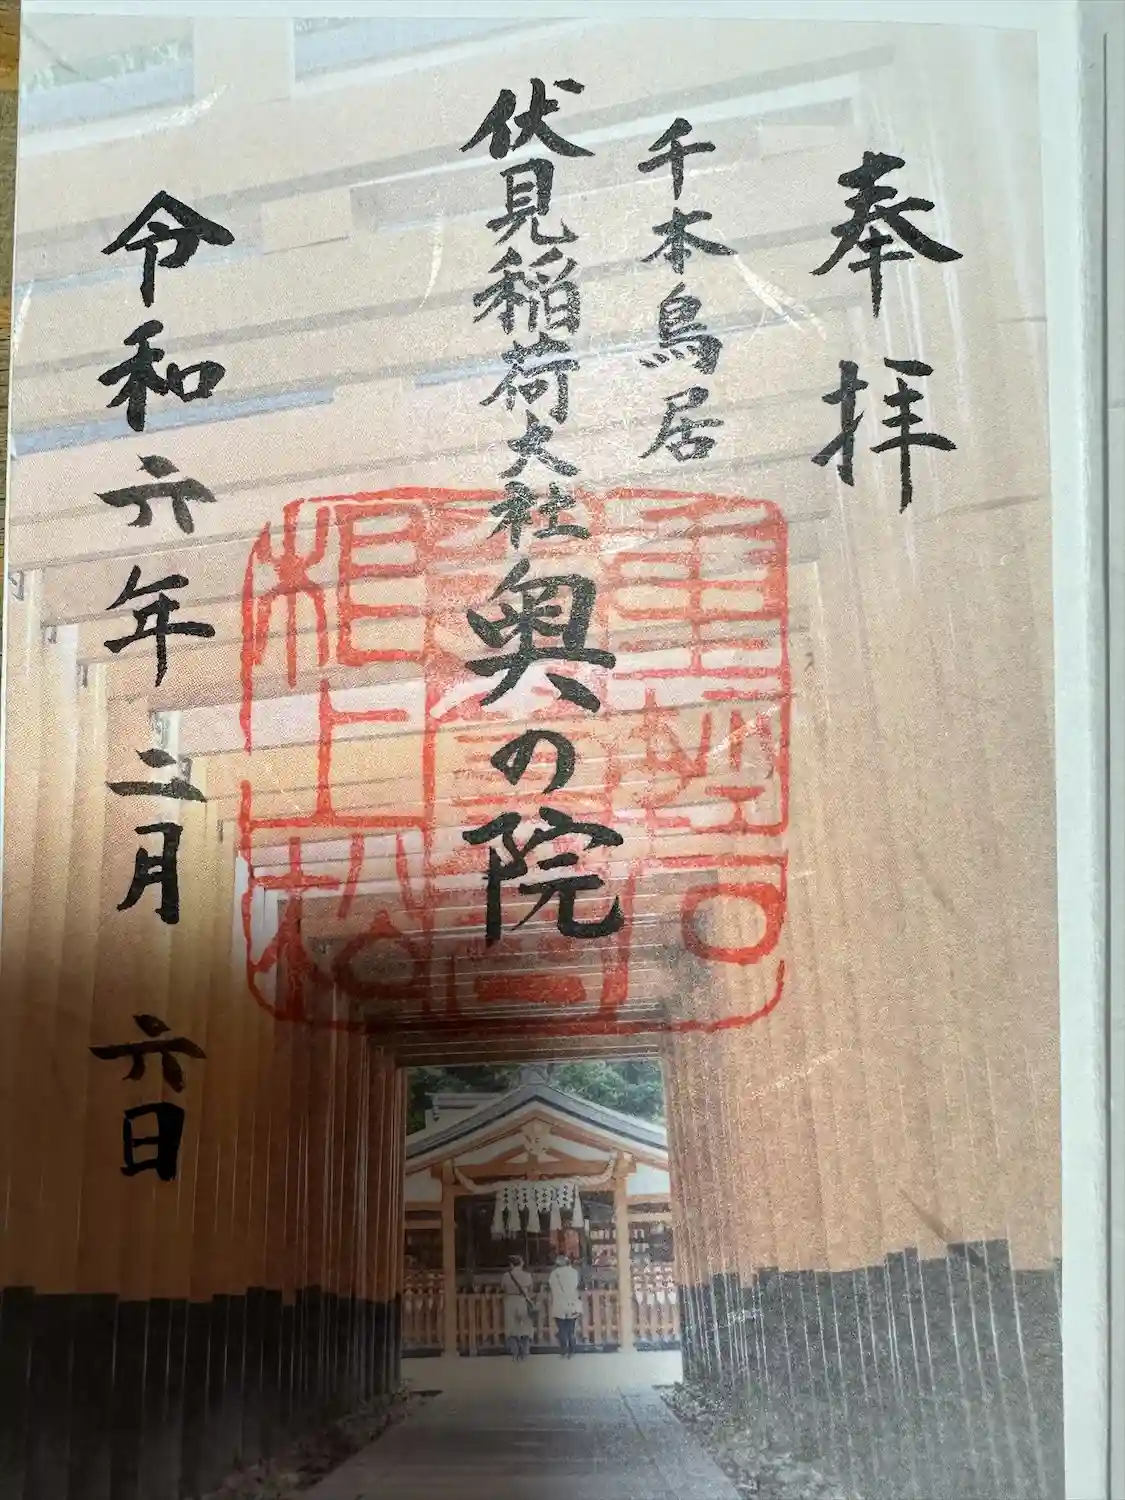 奉拝
千本鳥居
伏見稲荷大社奥の院
令和六年二月六日